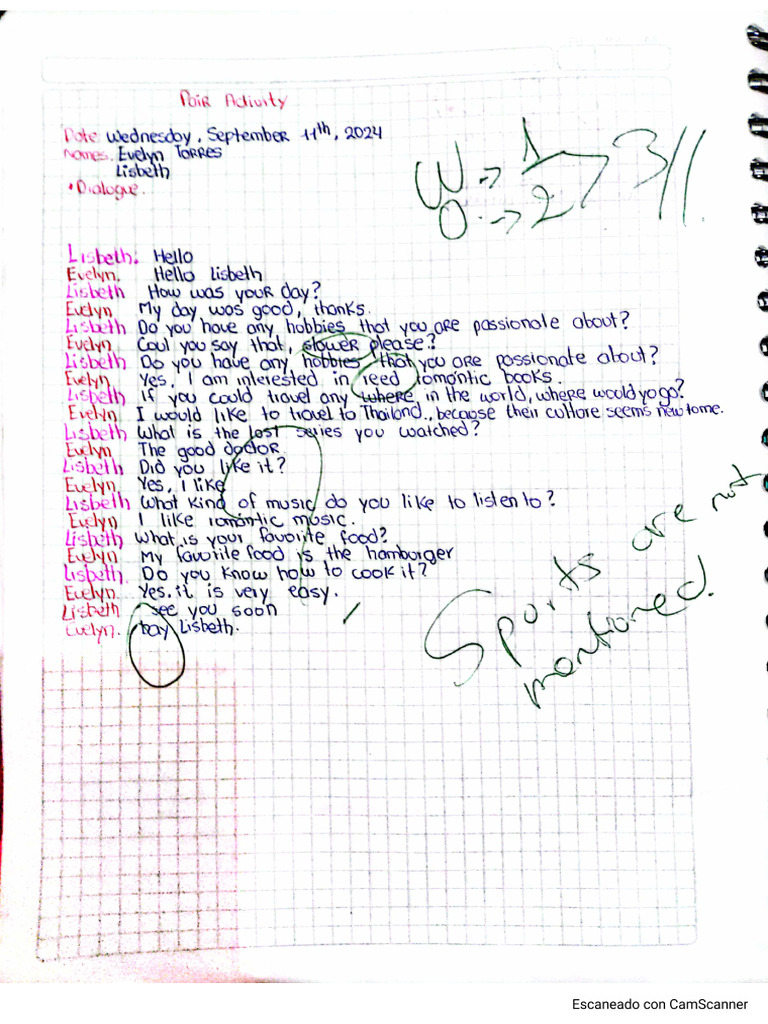 Pair Activity
Date: Wednesday, September 11th, 2024
Names: Evelyn Torres
Lisbeth
• Dialogue.
W → 1
O. → 2
3//.
Lisbeth: Hello
Evelyn. Hello Lisbeth
Lisbeth How was your day?
Evelyn My day was good, thanks.
Lisbeth Do you have any hobbies that you are passionate about?
Evelyn Coul you say that, slower please?
Lisbeth Do you have any hobbies that you are passionate about?
Evelyn Yes, I am interested in reed romantic books.
Lisbeth If you could travel any where in the world, where would yo go?
Evelyn I would like to travel to Thailand, because their culture seems new to me.
Lisbeth What is the last series you watched?
Evelyn The good doctor
Lisbeth Did you like it?
Evelyn. Yes, I like
Lisbeth What kind of music do you like to listen to?
Evelyn I like romantic music.
Lisbeth What is your favorite food?
Evelyn My favorite food is the hamburger
Lisbeth. Do you know how to cook it?
Evelyn. Yes, it is very easy.
Lisbeth see you soon
Evelyn. bay Lisbeth.
Sports are not
mentioned.
Escaneado con CamScanner